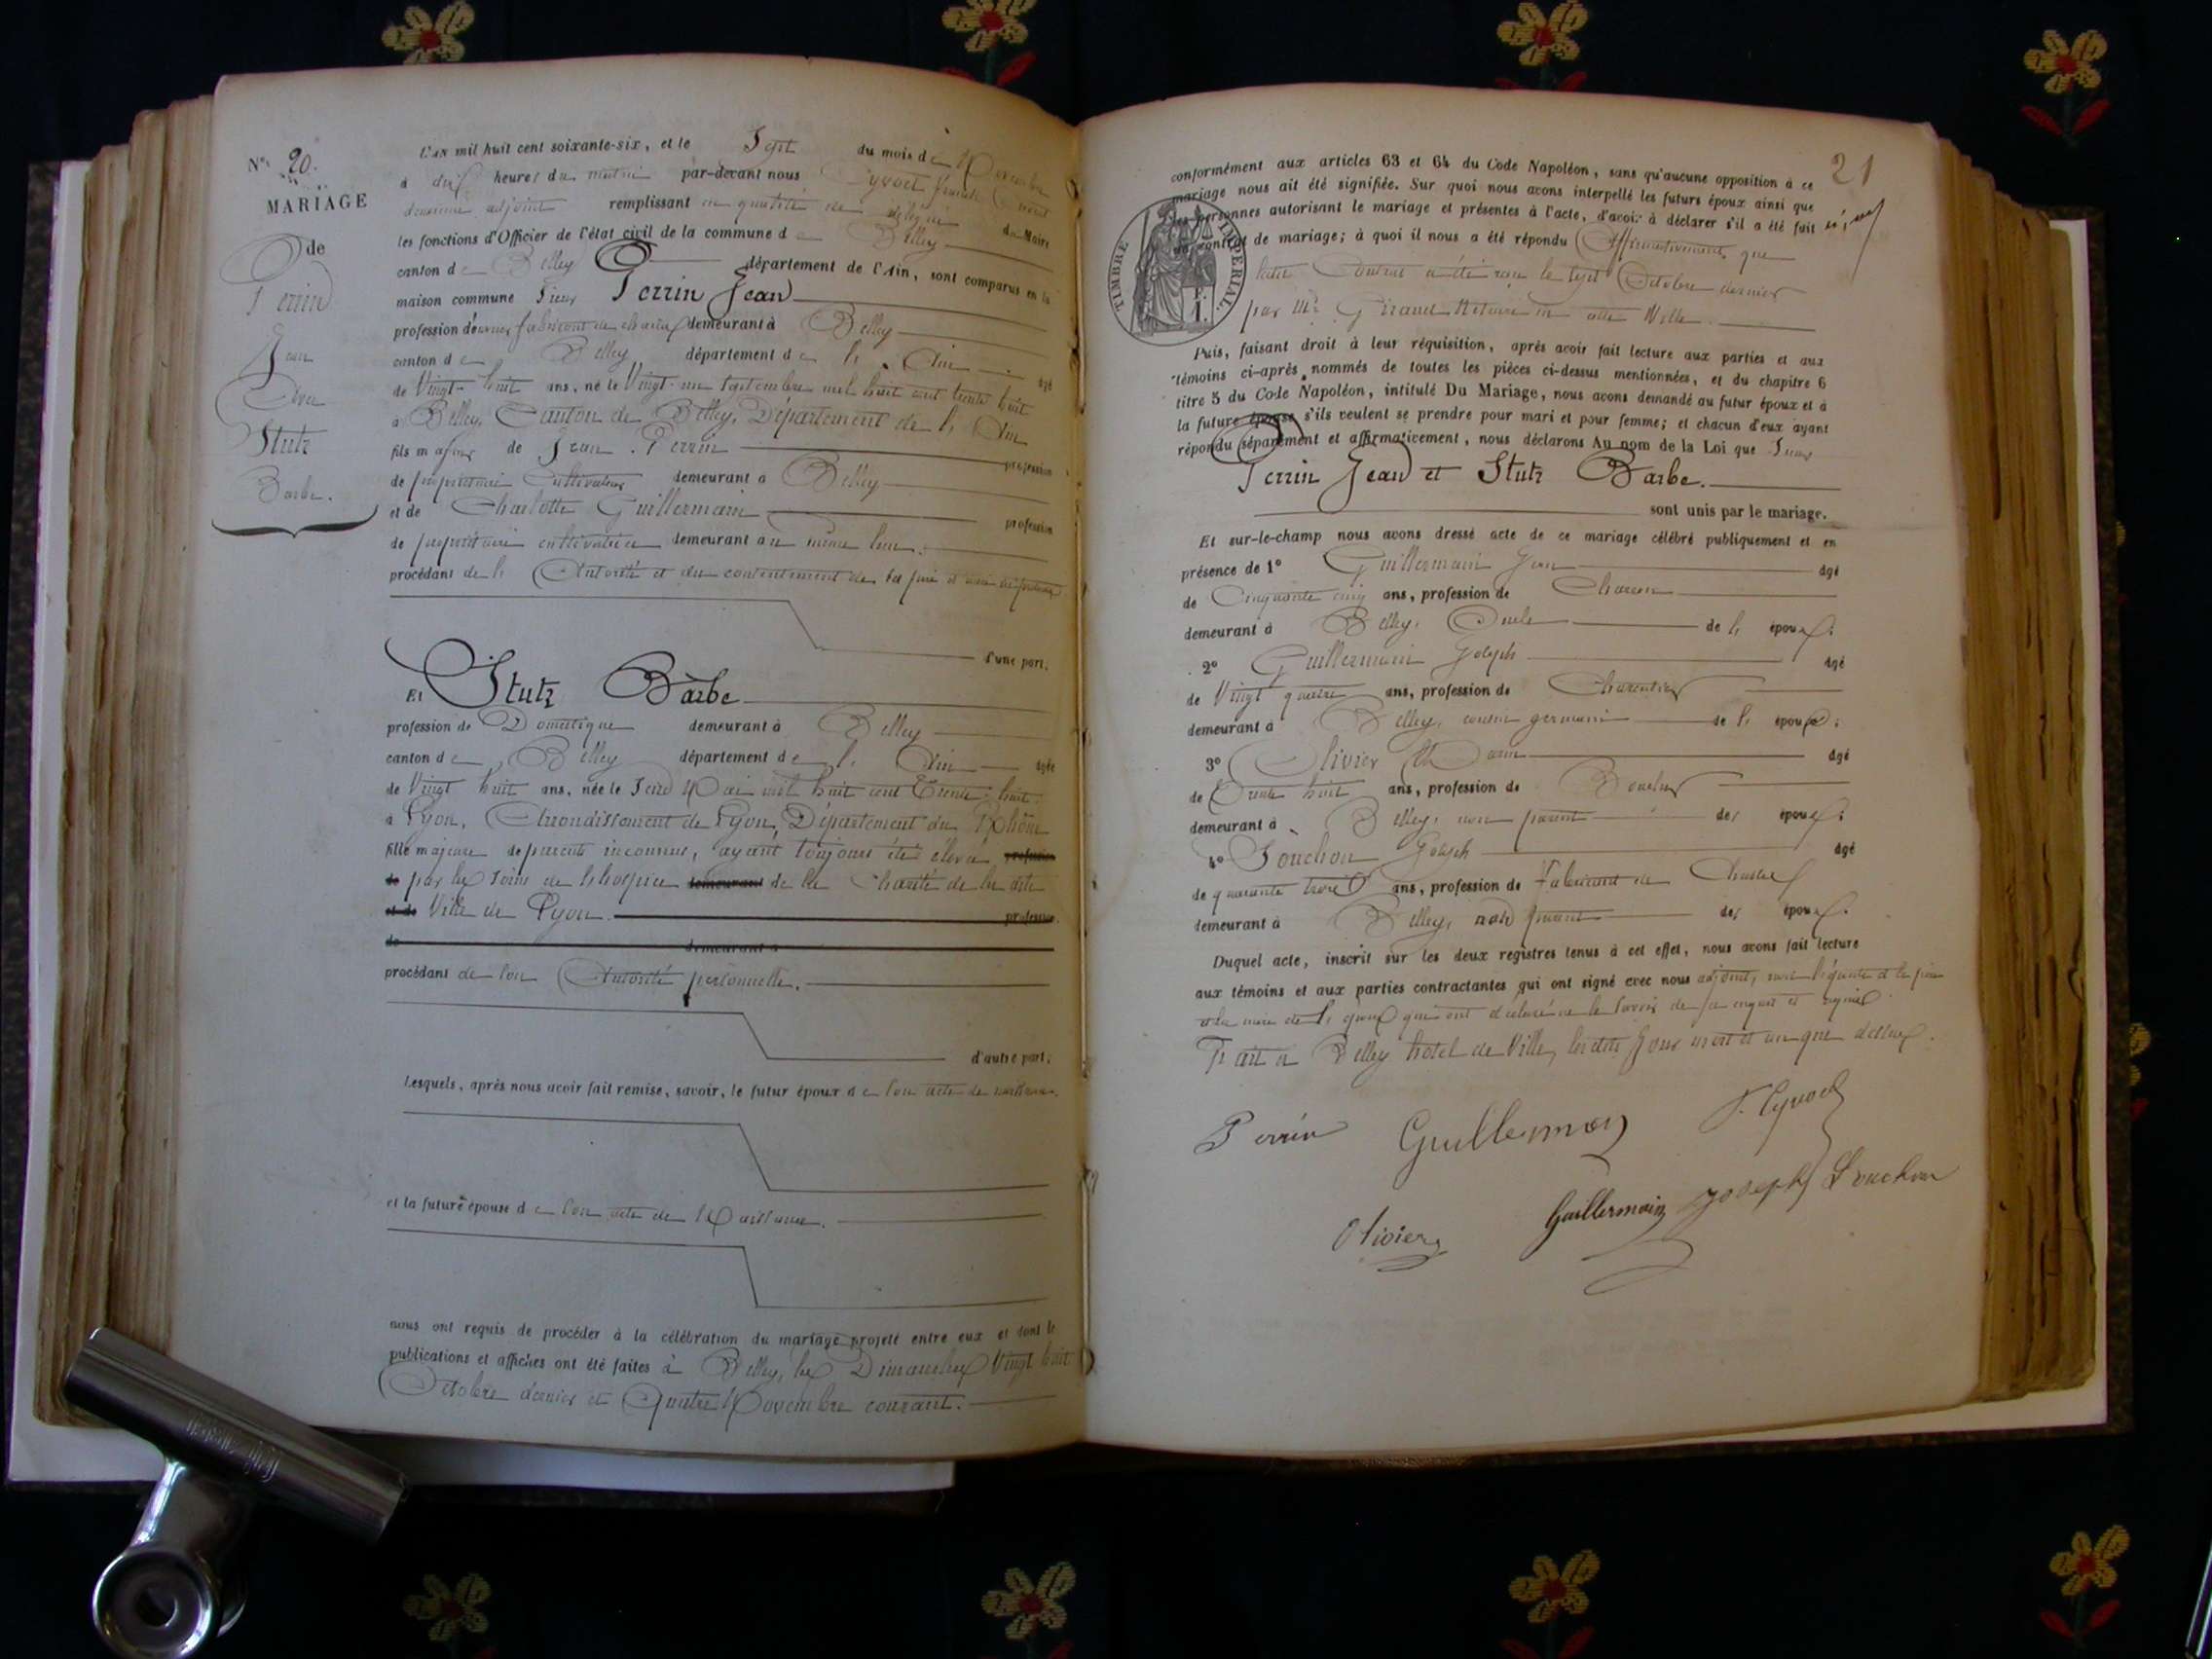 N° 20.
MARIAGE
de
Perrin
Jean
Avec
Stutz
Barbe.
L'AN mil huit cent soixante-six, et le Sept du mois de Novembre
à dix heures du matin par-devant nous
deuxième adjoint remplissant en qualité de délégué du Maire
les fonctions d'Officier de l'état civil de la commune de Belley
canton de Belley département de l'Ain, sont comparus en la
maison commune Sieur Perrin Jean
profession d'ouvrier fabricant de chaises demeurant à Belley
canton de Belley département de l'Ain âgé
de Vingt-huit ans, né le Vingt un Septembre mil huit cent trente huit
à Belley, Canton de Belley, Département de l'Ain
fils majeur de Jean Perrin profession
de propriétaire Cultivateur demeurant à Belley
et de Charlotte Guillermain profession
de propriétaire cultivatrice demeurant au même lieu.
procédant de l'Autorité et du consentement de ses père et mère ici présents
d'une part;
Et Stutz Barbe
profession de Domestique demeurant à Belley
canton de Belley département de l'Ain âgée
de Vingt huit ans, née le Seize Mai mil huit cent Trente huit
à Lyon, Arrondissement de Lyon, Département du Rhône
fille majeure de parents inconnus, ayant toujours été élevée profession
de par les soins de l'hospice demeurant de la Charité de la dite
et de Ville de Lyon. profession
de demeurant à
procédant de son Autorité personnelle.
d'autre part;
Lesquels, après nous avoir fait remise, savoir, le futur époux de son acte de naissance.
et la future épouse de son acte de Naissance.
nous ont requis de procéder à la célébration du mariage projeté entre eux et dont les
publications et affiches ont été faites à Belley, les Dimanches Vingt huit
Octobre dernier et Quatre Novembre courant.
21
conformément aux articles 63 et 64 du Code Napoléon, sans qu'aucune opposition à ce
mariage nous ait été signifiée. Sur quoi nous avons interpellé les futurs époux ainsi que
les personnes autorisant le mariage et présentes à l'acte, d'avoir à déclarer s'il a été fait
un contrat de mariage; à quoi il nous a été répondu Affirmativement, que
ledit Contrat a été reçu le sept Octobre dernier
par Me Giraud Notaire en cette Ville.
TIMBRE IMPERIAL
Puis, faisant droit à leur réquisition, après avoir fait lecture aux parties et aux
témoins ci-après nommés de toutes les pièces ci-dessus mentionnées, et du chapitre 6
titre 5 du Code Napoléon, intitulé Du Mariage, nous avons demandé au futur époux et à
la future épouse s'ils veulent se prendre pour mari et pour femme; et chacun d'eux ayant
répondu séparément et affirmativement, nous déclarons Au nom de la Loi que Sieur
Perrin Jean et Stutz Barbe.
sont unis par le mariage.
Et sur-le-champ nous avons dressé acte de ce mariage célébré publiquement et en
présence de 1° Guillermain Jean âgé
de Cinquante cinq ans, profession de Charron
demeurant à Belley, Oncle de l'époux;
2° Guillermain Joseph âgé
de Vingt quatre ans, profession de Charpentier
demeurant à Belley, cousin germain de l'époux;
3° Olivier âgé
de Trente huit ans, profession de Boucher
demeurant à Belley, non parent des époux;
4° Souchon Joseph âgé
de quarante trois ans, profession de Fabricant de Chaises
demeurant à Belley, non parent des époux.
Duquel acte, inscrit sur les deux registres tenus à cet effet, nous avons fait lecture
aux témoins et aux parties contractantes qui ont signé avec nous adjoint, sauf l'épouse et le père
et la mère de l'époux qui ont déclaré ne le savoir de ce enquis et requis.
Fait à Belley hôtel de Ville, lesdits jour mois et an que dessus.
Perrin Guillermain
Olivier Guillermain Joseph Souchon